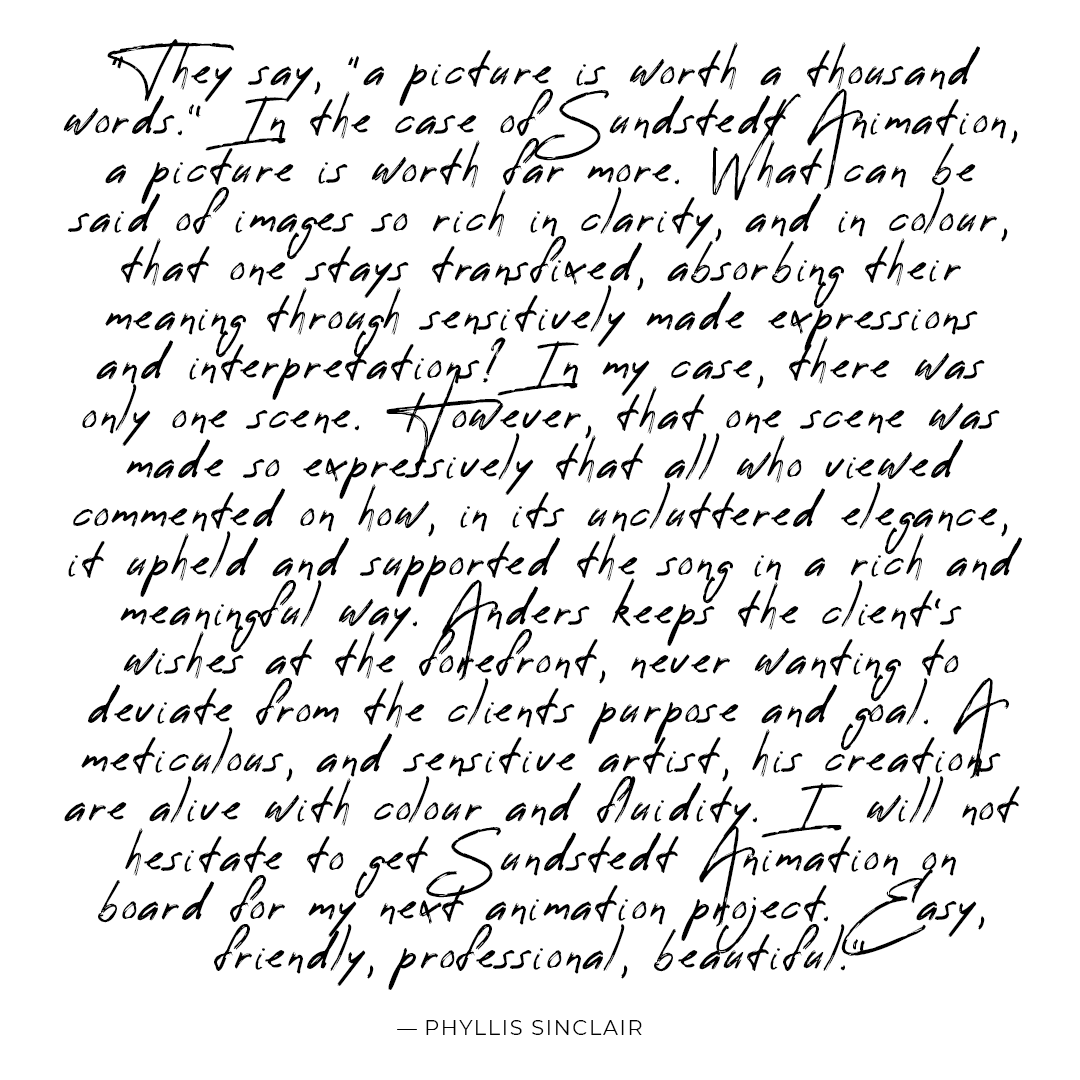 "They say, "a picture is worth a thousand
words." In the case of Sundstedt Animation,
a picture is worth far more. What can be
said of images so rich in clarity, and in colour,
that one stays transfixed, absorbing their
meaning through sensitively made expressions
and interpretations? In my case, there was
only one scene. However, that one scene was
made so expressively that all who viewed
commented on how, in its uncluttered elegance,
it upheld and supported the song in a rich and
meaningful way. Anders keeps the client's
wishes at the forefront, never wanting to
deviate from the clients purpose and goal. A
meticulous, and sensitive artist, his creations
are alive with colour and fluidity. I will not
hesitate to get Sundstedt Animation on
board for my next animation project. Easy,
friendly, professional, beautiful."
— PHYLLIS SINCLAIR